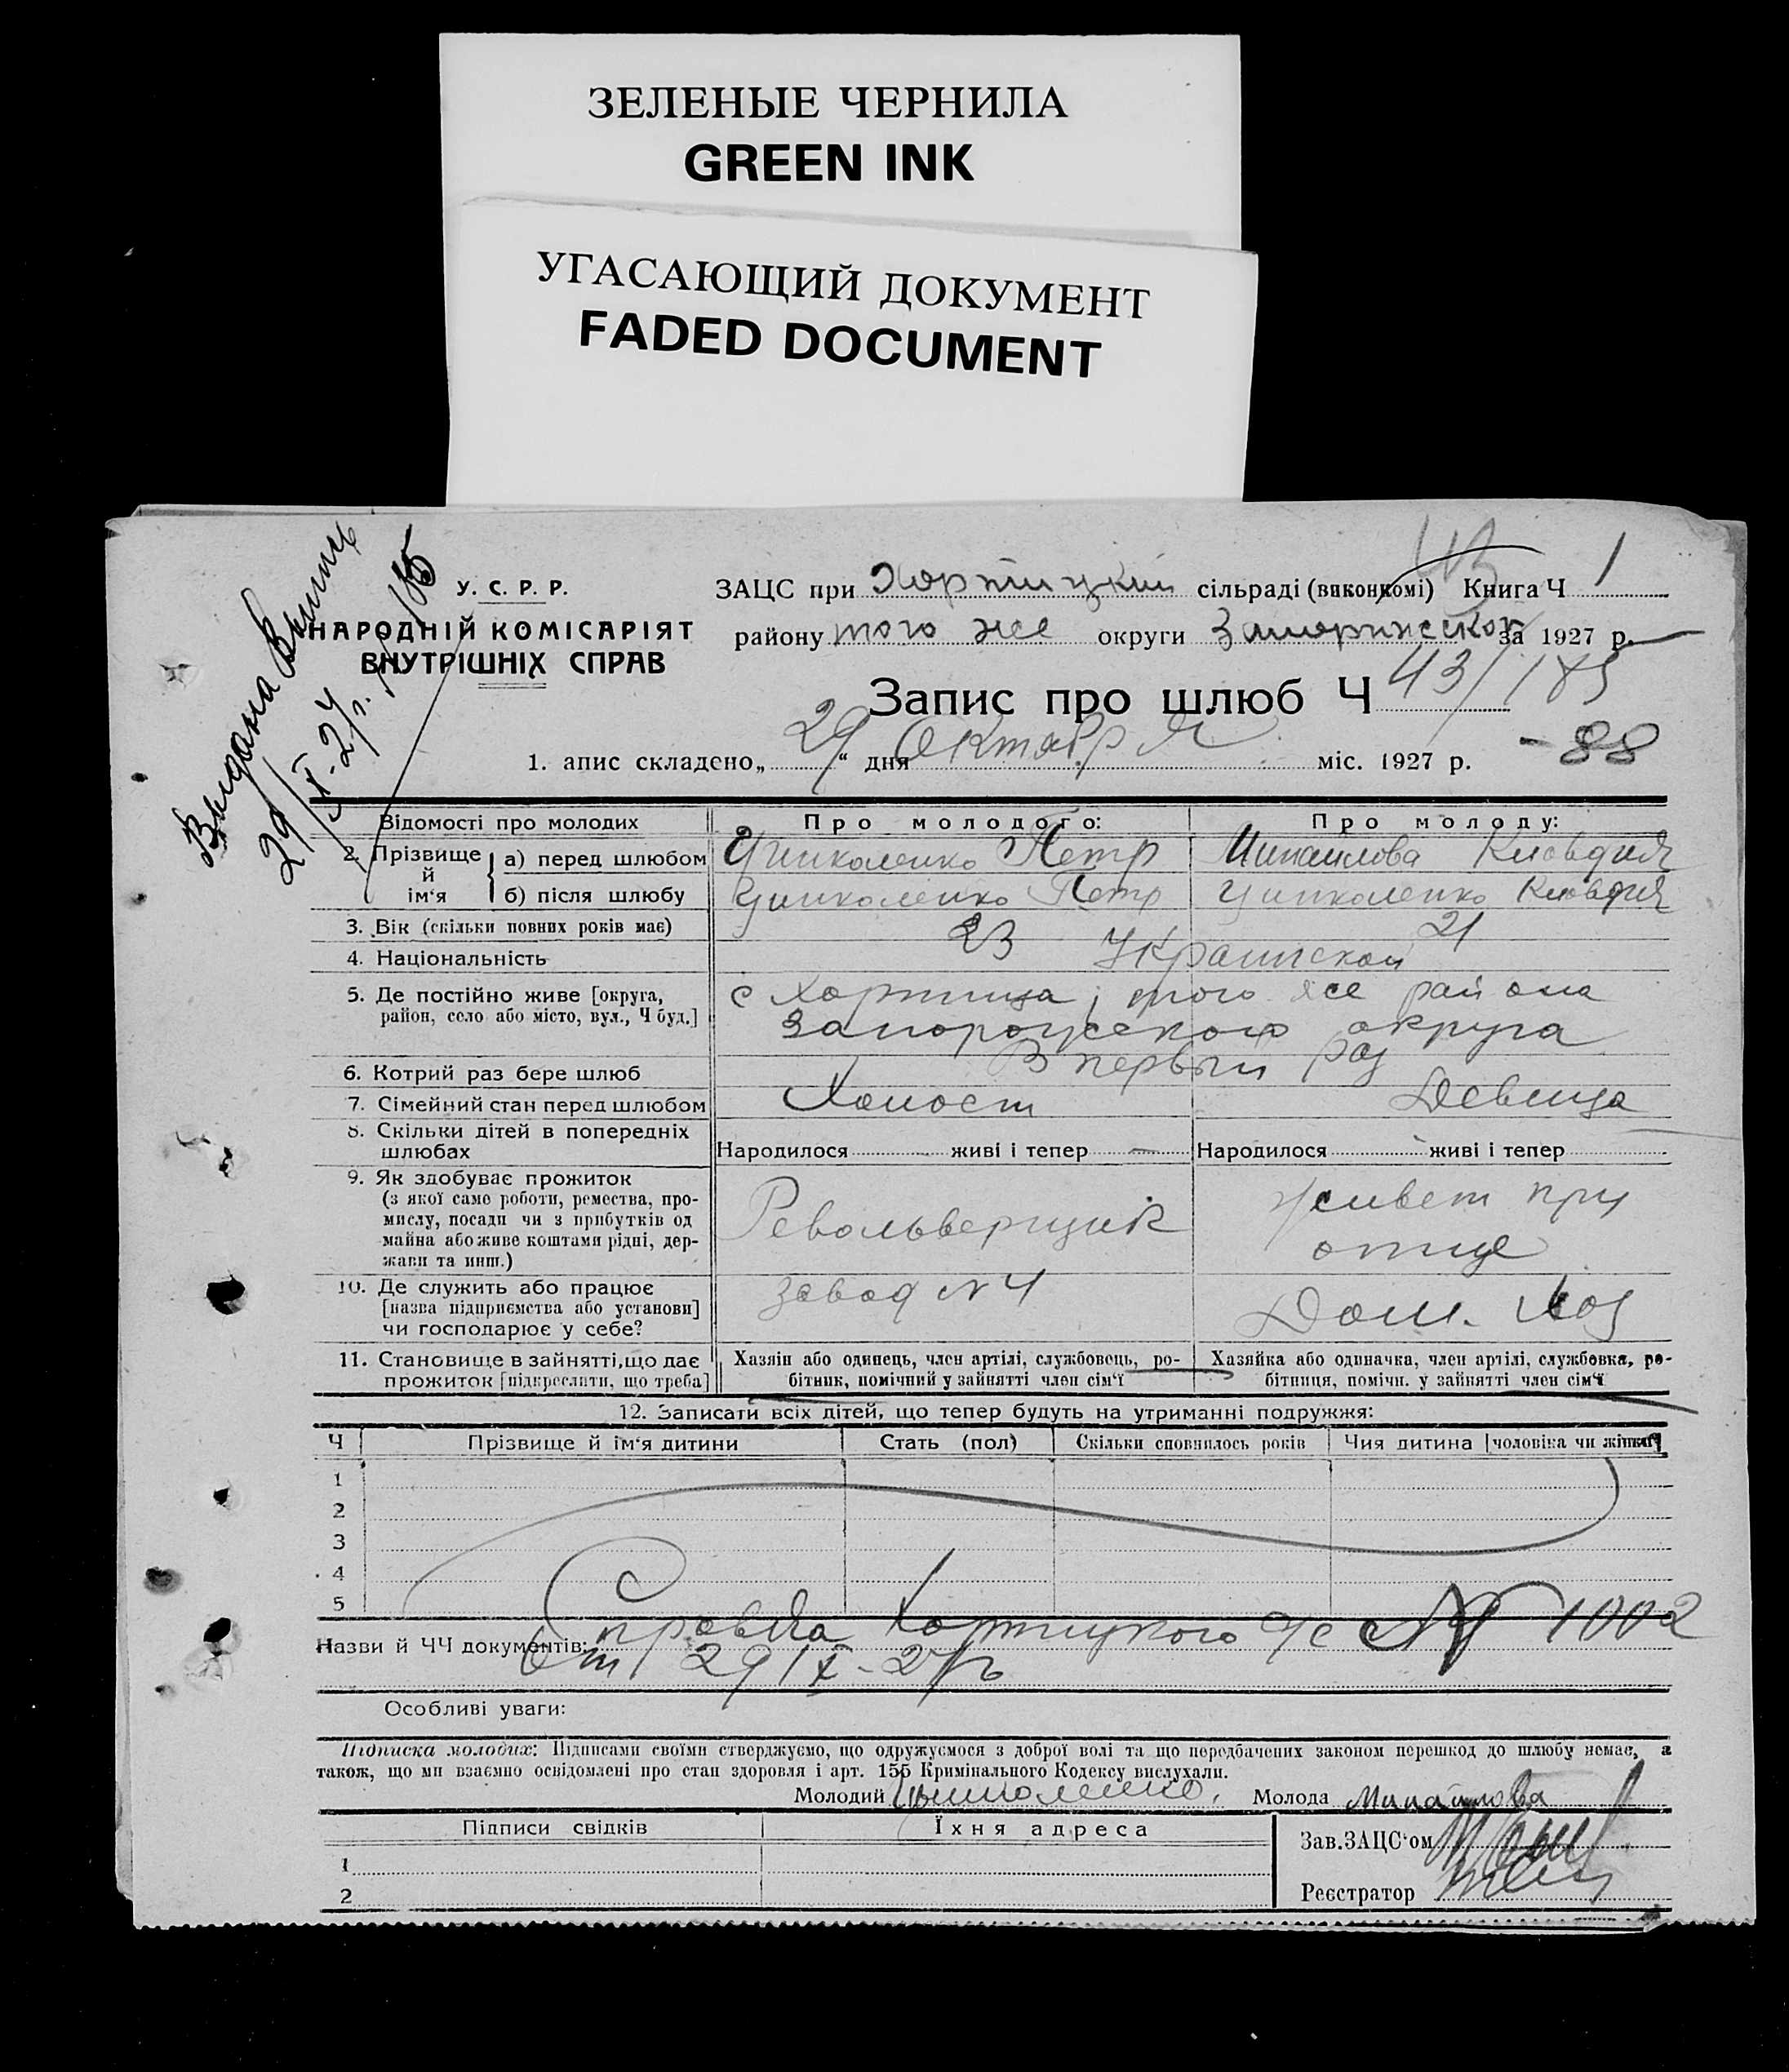 ЗЕЛЕНЫЕ ЧЕРНИЛА
GREEN INK
УГАСАЮЩИЙ ДОКУМЕНТ
FADED DOCUMENT
Выдана Выпись
29/IX-27 г. №
У. С. Р. Р.
НАРОДНІЙ КОМІСАРІЯТ
ВНУТРІШНІХ СПРАВ
ЗАЦС при Хортицкій сільраді (виконкомі) Книга Ч 1
району того же округи за 1927 р.
Запис про шлюб Ч 43/185
- 88
1. апис складено „29“ дня Октября міс. 1927 р.
Відомості про молодих
Про молодого:
Про молоду:
2. Прізвище й ім‘я
а) перед шлюбом
Петр
б) після шлюбу
Петр
3. Вік (скільки повних років має)
23
21
4. Національність
5. Де постійно живе [округа, район, село або місто, вул., Ч буд.]
с Хортица, того же района
Запорожского округа
6. Котрий раз бере шлюб
В первый раз
7. Сімейний стан перед шлюбом
Холост
Девица
8. Скільки дітей в попередніх шлюбах
Народилося живі і тепер —
Народилося живі і тепер
9. Як здобуває прожиток
(з якої само роботи, ремества, про-
мислу, посади чи з прибутків од
майна або живе коштами рідні, дер-
жави та инш.)
Револьверщик
живет при
отце
10. Де служить або працює
[назва підприємства або установи]
чи господарює у себе?
завод N 4
Дом. хоз
11. Становище в зайнятті, що дає
прожиток [підкреслити, що треба]
Хазяін або одинець, член артілі, службовець, ро-
бітник, помічний у зайнятті член сім‘ї
Хазяйка або одиначка, член артілі, службовка, ро-
бітниця, помічн. у зайнятті член сім‘ї
12. Записати всіх дітей, що тепер будуть на утриманні подружжя:
Ч
Прізвище й ім‘я дитини
Стать (пол)
Скільки сповнилось років
Чия дитина [чоловіка чи жінки]
1
2
3
4
5
Назви й ЧЧ документів: Справка Хортицкого с/с № 1002
От 29/IX-27 г.
Особливі уваги:
Підписка молодих: Підписами своїми стверджуємо, що одружуємося з доброї волі та що передбачених законом перешкод до шлюбу немає, а
також, що ми взаємно освідомлені про стан здоровля і арт. 155 Кримінального Кодексу вислухали.
Молодий
Молода
Підписи свідків
Їхня адреса
1
2
Зав.ЗАЦС‘ом
Реєстратор